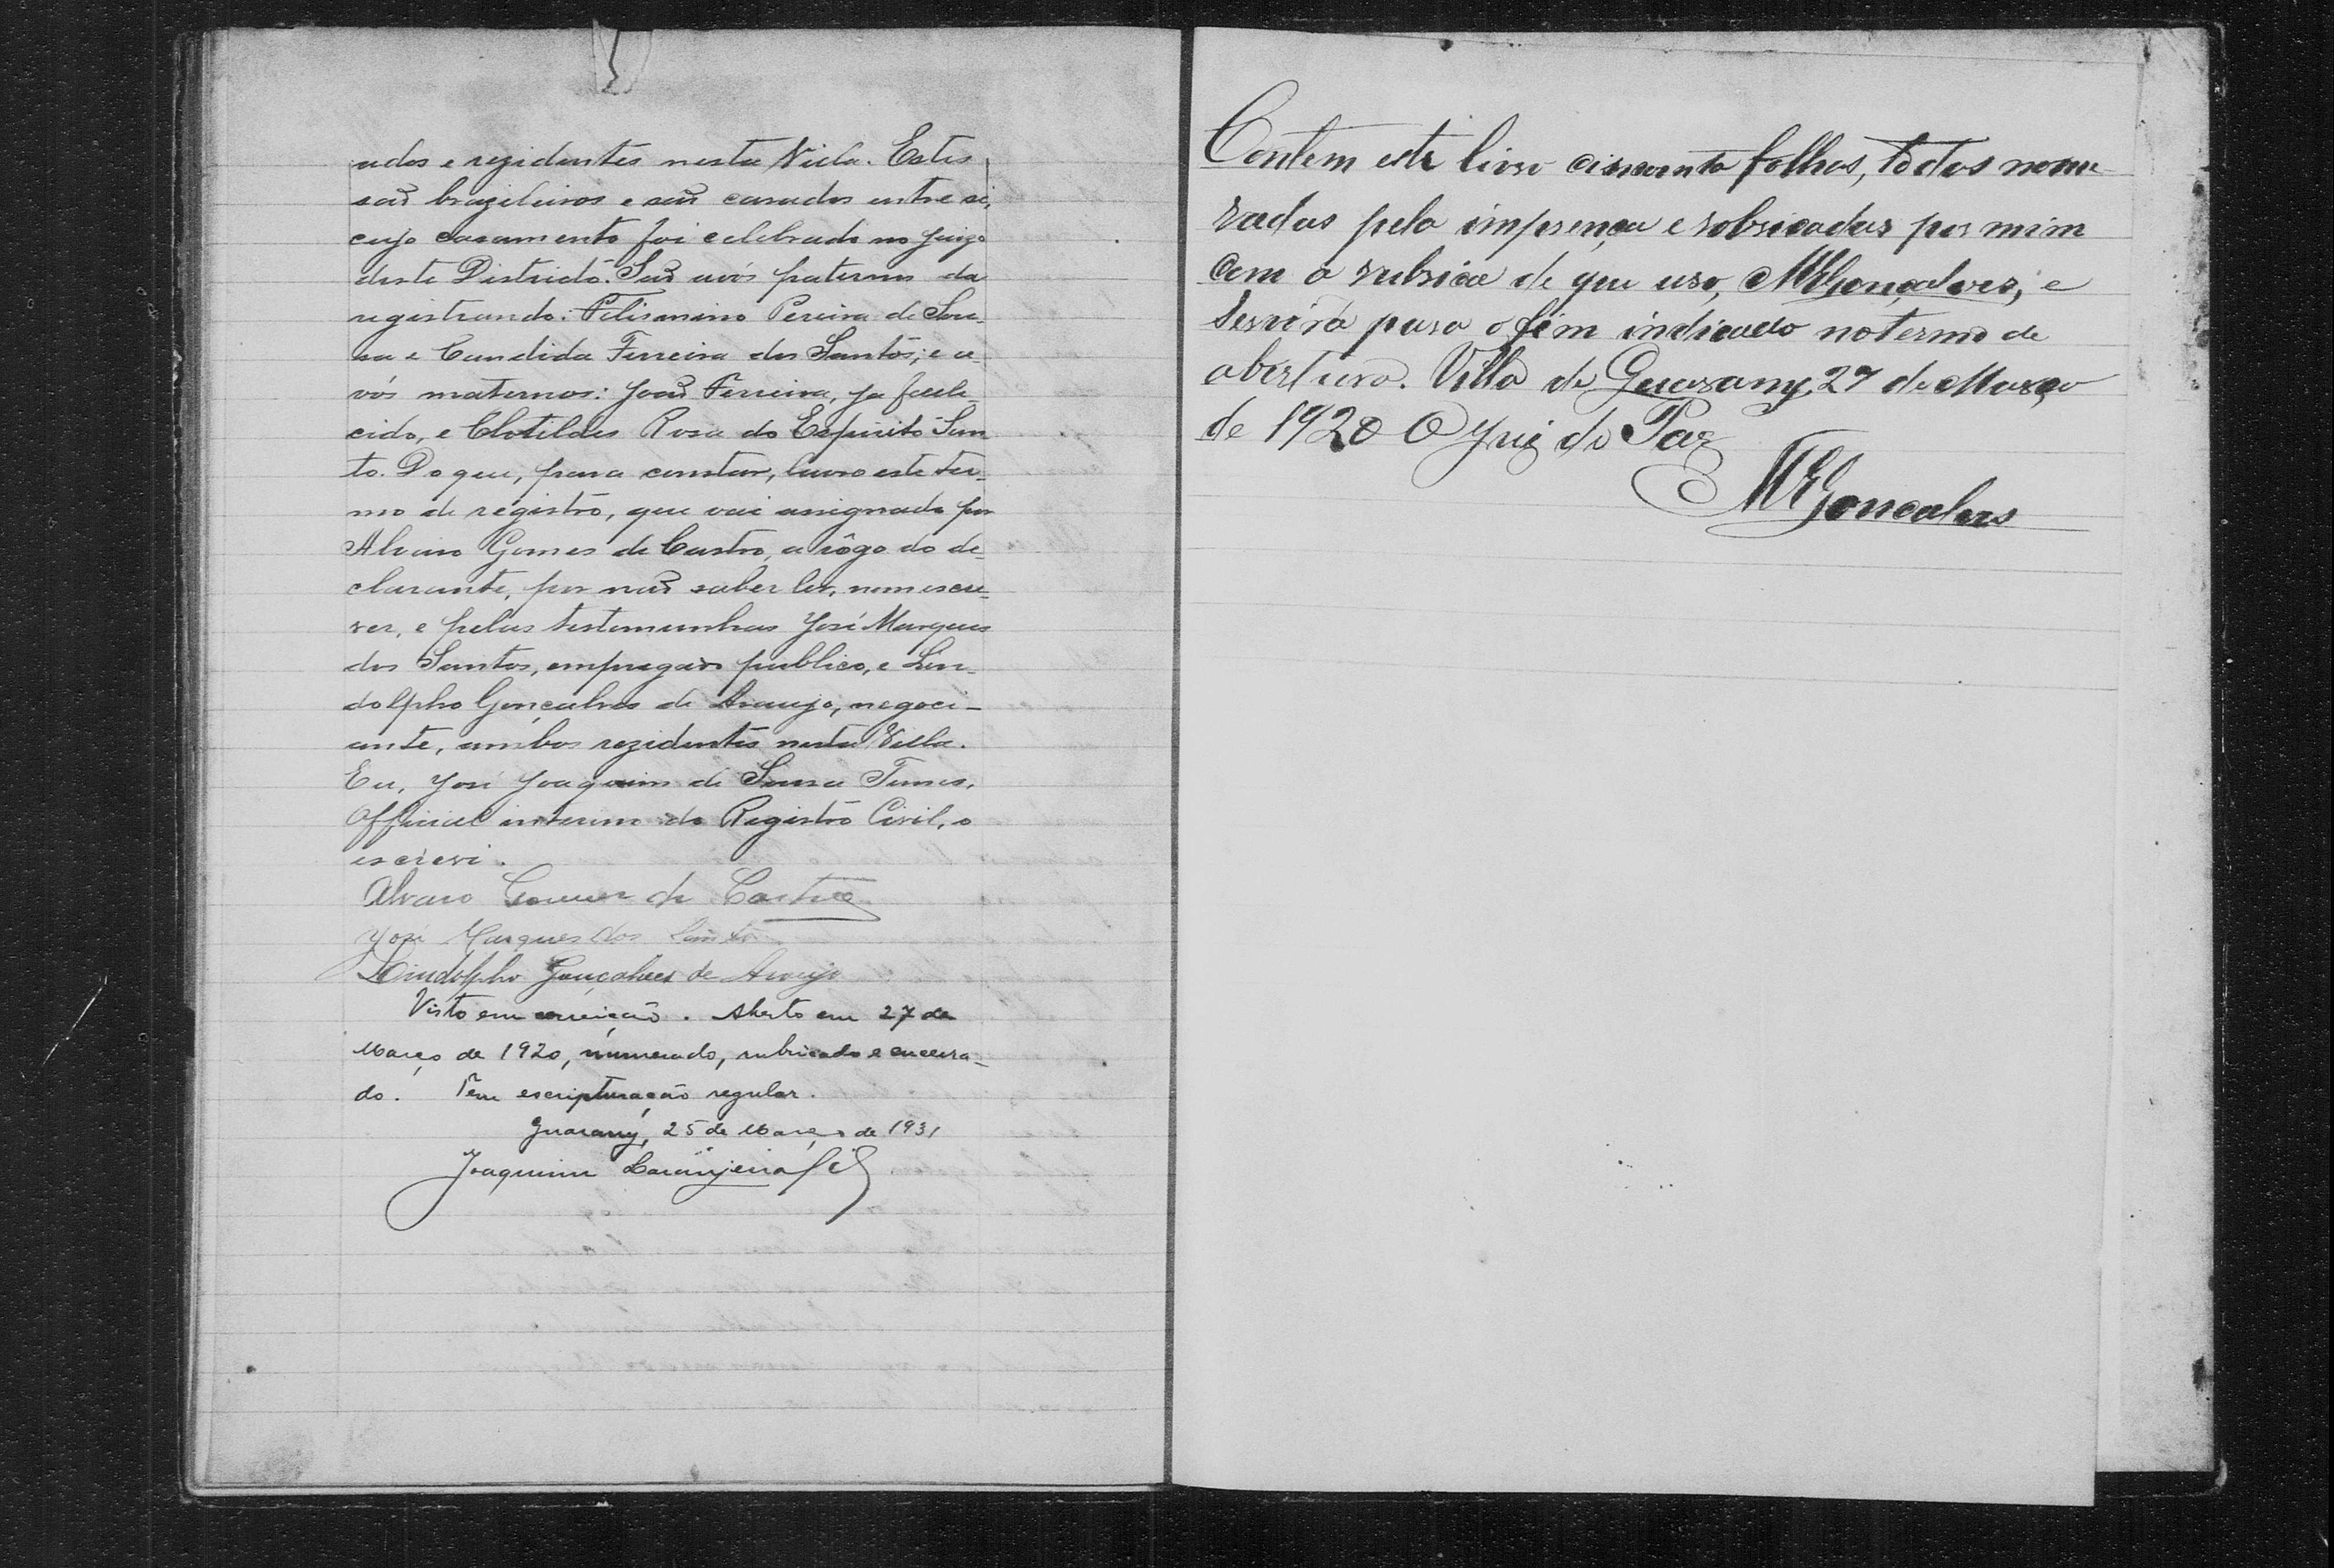 ados e rezidentes nesta Villa. Estes
são brazileiros e são casados entre si,
cujo casamento foi celebrado no Juizo
deste Districto. São avós paternos da
registrando: Felismino Pereira de Sou-
sa e Candida Ferreira dos Santos; e a-
vós maternos: João Ferreira, ja falle-
cido, e Clotildes Rosa do Espirito San
to. Do que, para constar, lavro este ter-
mo de registro, que vai assignado por
Alvaro Gomes de Castro, a rôgo do de-
clarante, por não saber ler, nem escre-
ver, e pelas testemunhas José Marques
dos Santos, empregado publico, e Lin-
dolpho Gonçalves de Araujo, negoci-
ante, ambos rezidentes nesta Villa.
Eu, José Joaquim de Sousa
Official interino do Registro Civil, o
escrevi.
Alvaro Gomes de Castro
José Marques dos Santos
Lindolpho Gonçalves de Araujo
Visto em correição. Aberto em 27 de
Março de 1920, numerado, rubricado e encerra-
do. Tem escripturação regular.
Guarany, 25 de Março de 1931
Joaquim Laranjeira
Contem este livro cincoenta folhas, todas nome-
radas pela imprença e robricadas por mim
com a rubrica de que uso, MEGonçalves, e
Servirá para o fim indicado no termo de
abertura. Villa de Guarany, 27 de Março
de 1920 O Juiz de Paz
MEGoncalves